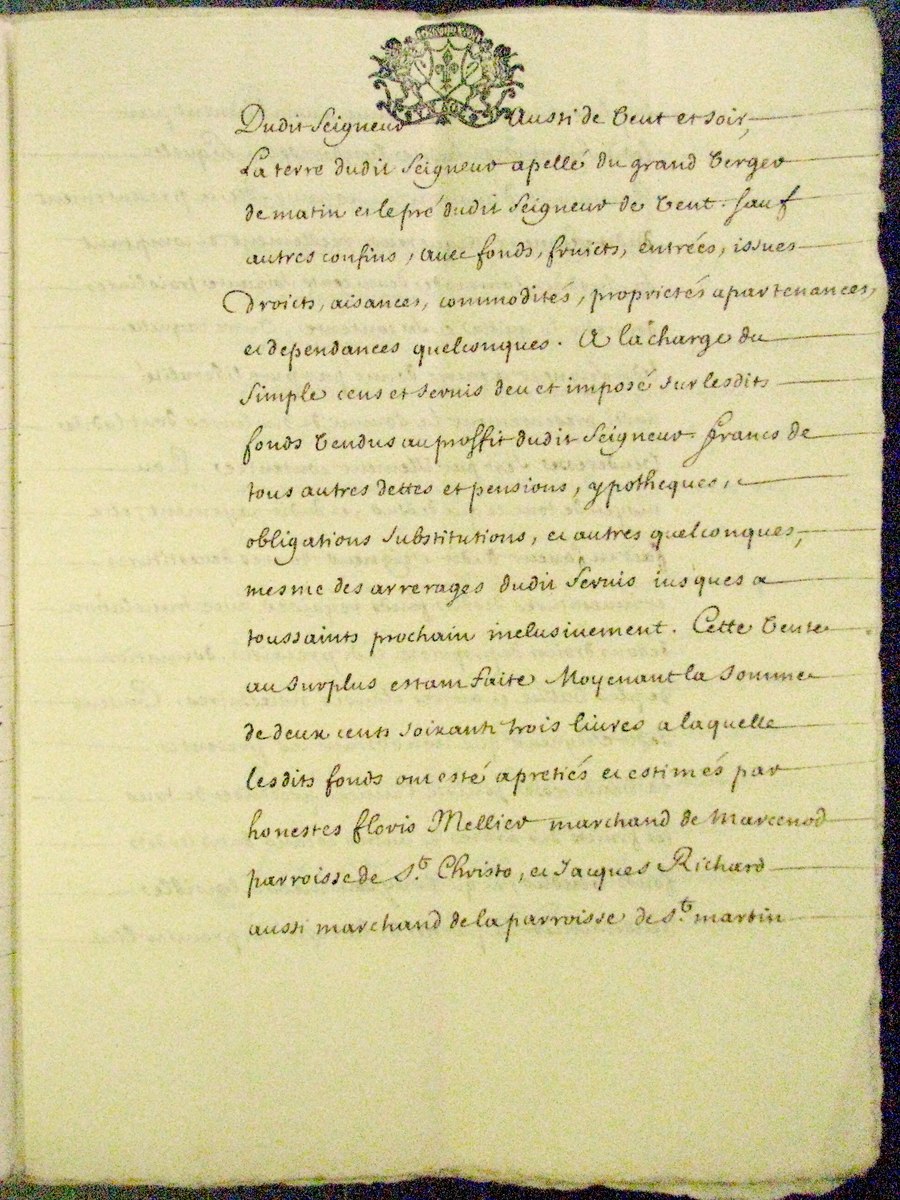 Dudit Seigneur aussi de Vent et soir,
La terre dudit Seigneur apellé du grand Verger
de matin et le pré dudit Seigneur de Vent. Sauf
autres confins, avec fonds, fruicts, entrées, issues
Droicts, aisances, commodités, proprietés apartenances,
et dependances quelconques. A la charge du
simple cens et servis deu et imposé sur lesdits
fonds Vendus au proffit dudit Seigneur. francs de
tous autres dettes et pensions, ypotheques,
obligations substitutions, et autres quelconques,
mesme des arrerages dudit Servis iusques a
toussaints prochain inclusivement. Cette Vente
au surplus estant faite Moyenant la Somme
de deux cents soixante trois livres a laquelle
lesdits fonds ont esté apretiés et estimés par
honestes floris Mellier marchand de Marcenod
parroisse de St. Christo, et Jacques Richard
aussi marchand de la parroisse de St. martin